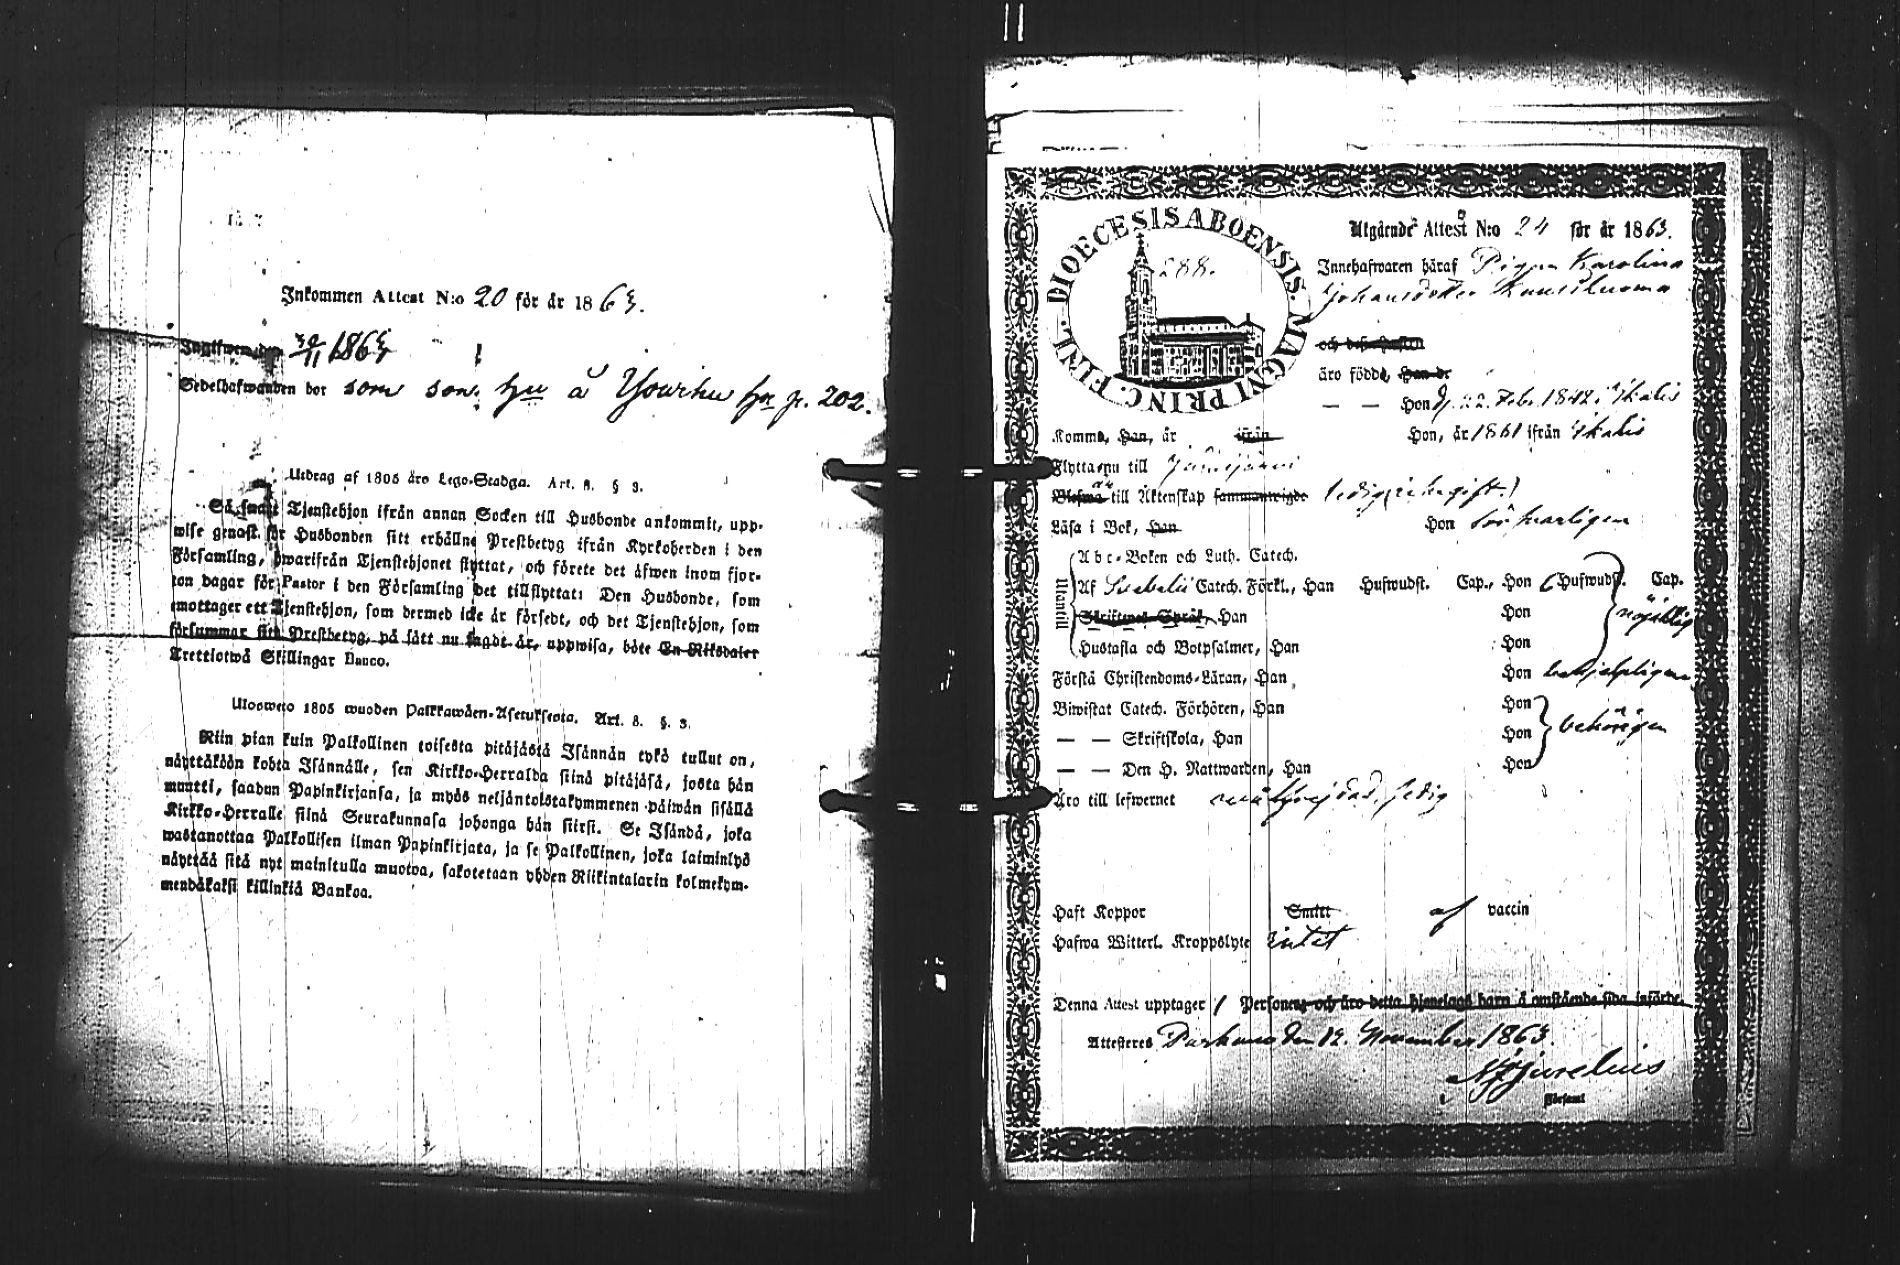 Inkommen Attest N:o 20 för år 1863.
30/11 1863
Sedelhafwanden bor som son: hu å Yowihu hu p. 202.
Utdrag af 1805 års Lego-Stadga. Art. 8. § 3.
Så snart Tjenstehjon ifrån annan Socken till Husbonde ankommit, upp-
wise genast för Husbonden sitt erhållne Prestbetyg ifrån Kyrkoherden i den
Församling, hwarifrån Tjenstehjonet flyttat, och förete det äfwen inom fjor-
ton dagar för Pastor i den Församling det tillflyttat: Den Husbonde, som
emottager ett Tjenstehjon, som dermed icke är försedt, och det Tjenstehjon, som
försummar sitt Prestbetyg, på sätt nu sagdt är, uppwisa, böte En Riksdaler
Trettiotwå Skillingar Banco.
Ulosweto 1805 wuoden Palkkawäen-Asetuksesta. Art. 8. §. 3.
Niin pian kuin Palkollinen toisesta pitäjästä Isännän tykö tullut on,
näyttäköön kohta Isännälle, sen Kirkko-Herralda siinä pitäjäsä, josta hän
muutti, saadun Papinkirjansa, ja myös neljäntoistakymmenen päiwän sisällä
Kirkko-Herralle siinä Seurakunnasa johonga hän siirsi. Se Isändä, joka
wastanottaa Palkollisen ilman Papinkirjata, ja se Palkollinen, joka laiminlyö
näyttää sitä nyt mainitulla muotoa, sakotetaan yhden Riikintalarin kolmekym-
mendäkaksi killinkiä Bankoa.
DIOECESIS ABOENSIS. MAGNI PRINC. FINL.
288.
Utgående Attest N:o 24 för år 1863.
Innehafwaren häraf Pigan Karolina
Johansdotter
äro född, Han d:
— — Hon d. 22. Febr. 1842 i Ikalis
Komma, Han, år ifrån Hon, år 1861 ifrån Ikalis
Flytta nu till Jämijärvi
till Äktenskap sammanwigde ledig (icke gift.)
Läsa i Bok, Han Hon försvarligen
Utantill
Abc-Boken och Luth. Catech.
Af Svebelii Catech. Förkl., Han Hufwudst. Cap., Hon 6 Hufwudst. Cap.
Skriftenes Språk, Han Hon nöjaktig
Hustafla och Botpsalmer, Han Hon
Förstå Christendoms-Läran, Han Hon
Biwistat Catech. Förhören, Han Hon
— — Skriftskola, Han Hon behörigen
— — Den H. Nattwarden, Han Hon
Äro till lefwernet oväldfrejdad, ledig
Haft Koppor Smitt af vaccin
Hafwa Witterl. Kroppslyte intet
Denna Attest upptager 1 Personer och äro detta hjonelags barn å omstående sida införde.
Attesteras Parkano den 12. November 1863.